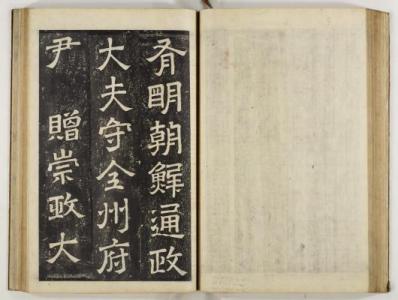 有明朝鮮通政
大夫守全州府
尹 贈崇政大